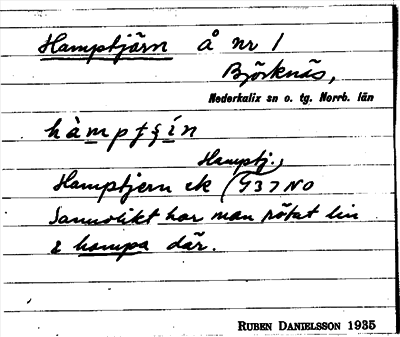 Hamptjärn å nr 1
Björknäs,
Nederkalix sn o. tg. Norrb. län
Hamptj.,
Hamptjern ek (737 NO
Sannolikt har man rötat lin
& hampa där.
RUBEN DANIELSSON 1935